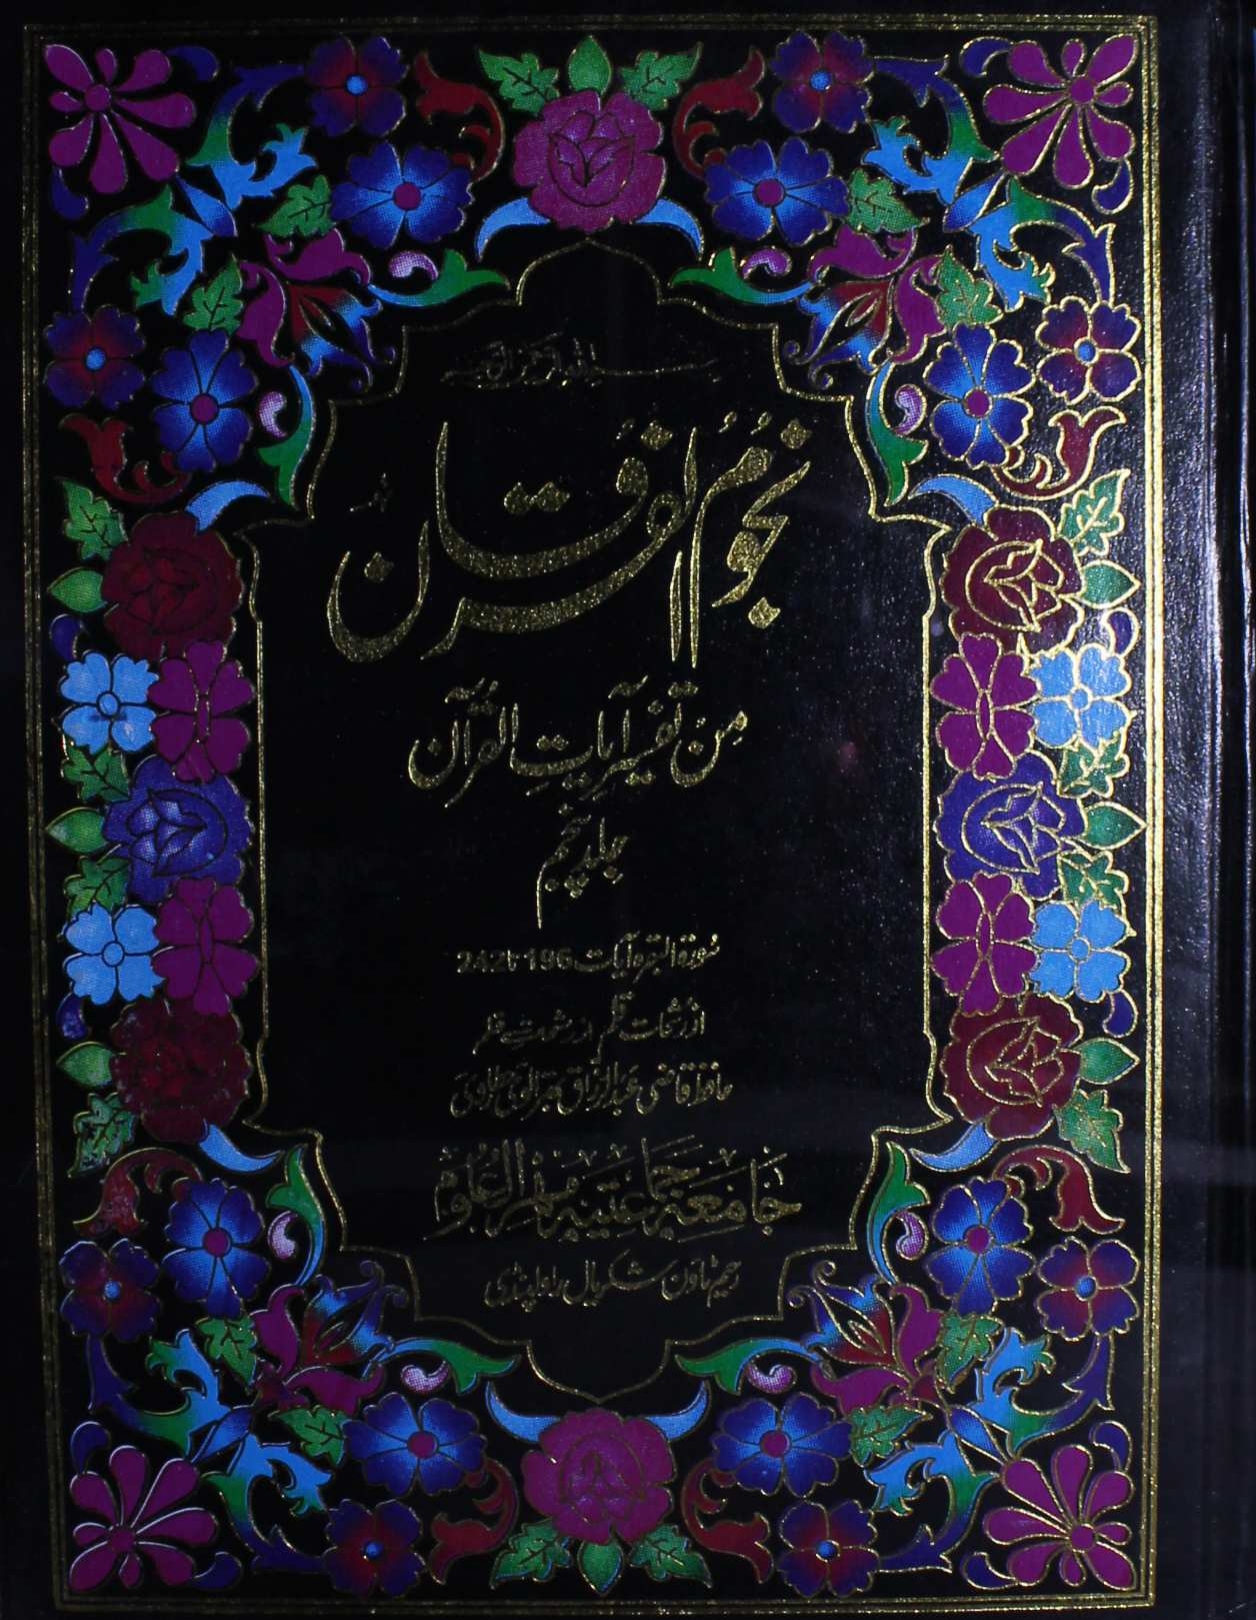 بسم الله الرحمن الرحيم
نُجُومُ الفُرقَان
مِن تفسیر آیاتِ القُرآن
جلد پنجم
سُورۃ البقرہ آیات 196 تا 242
از رشحاتِ قلم
حافظ قاضی عبدالرزاق بھترالوی حطاروی
جَامِعَہ جَمَاعَتِیہ مہر العُلُوم
رحیم ٹاؤن شکریال راولپنڈی